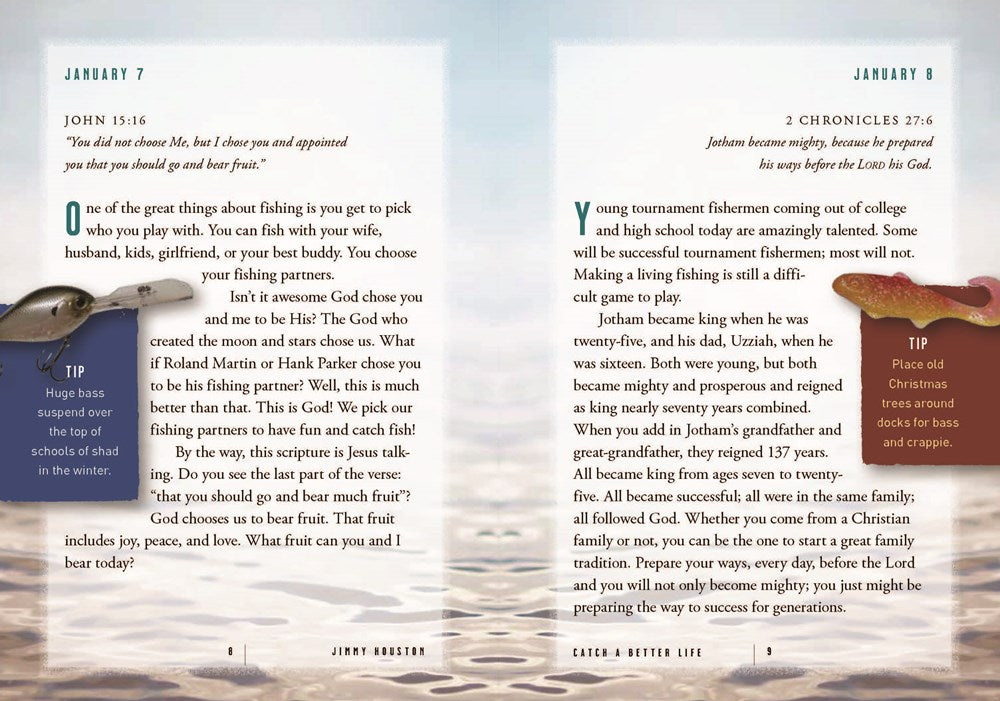 JANUARY 7
JOHN 15:16
“You did not choose Me, but I chose you and appointed
you that you should go and bear fruit.”
One of the great things about fishing is you get to pick
who you play with. You can fish with your wife,
husband, kids, girlfriend, or your best buddy. You choose
your fishing partners.
Isn’t it awesome God chose you
and me to be His? The God who
created the moon and stars chose us. What
if Roland Martin or Hank Parker chose you
to be his fishing partner? Well, this is much
better than that. This is God! We pick our
fishing partners to have fun and catch fish!
By the way, this scripture is Jesus talk-
ing. Do you see the last part of the verse:
“that you should go and bear much fruit”?
God chooses us to bear fruit. That fruit
includes joy, peace, and love. What fruit can you and I
bear today?
TIP
Huge bass
suspend over
the top of
schools of shad
in the winter.
8
JIMMY HOUSTON
JANUARY 8
2 CHRONICLES 27:6
Jotham became mighty, because he prepared
his ways before the LORD his God.
Young tournament fishermen coming out of college
and high school today are amazingly talented. Some
will be successful tournament fishermen; most will not.
Making a living fishing is still a diffi-
cult game to play.
Jotham became king when he was
twenty-five, and his dad, Uzziah, when he
was sixteen. Both were young, but both
became mighty and prosperous and reigned
as king nearly seventy years combined.
When you add in Jotham’s grandfather and
great-grandfather, they reigned 137 years.
All became king from ages seven to twenty-
five. All became successful; all were in the same family;
all followed God. Whether you come from a Christian
family or not, you can be the one to start a great family
tradition. Prepare your ways, every day, before the Lord
and you will not only become mighty; you just might be
preparing the way to success for generations.
TIP
Place old
Christmas
trees around
docks for bass
and crappie.
CATCH A BETTER LIFE
9